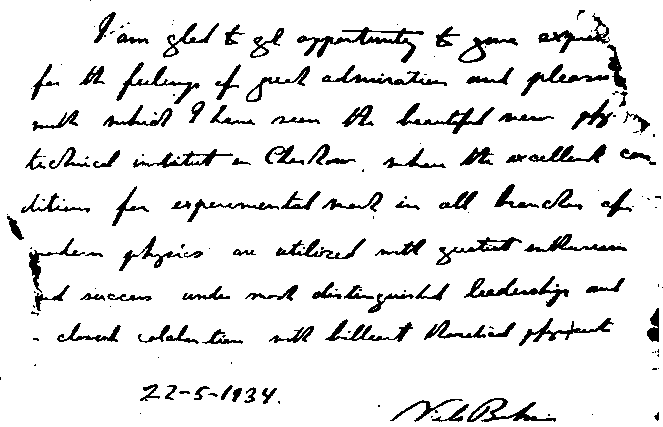 I am glad to get opportunity to give expression
for the feelings of great admiration and pleasure
with which I have seen the beautiful new phy
technical institut in Charkow, where the excellent con
ditions for experimental work in all branches of
modern physics are utilized with greatest enthusiasm
and success under most distinguished leadership and
closest colaboration with brilliant theoretical physicists
22-5-1934.
Niels Bohr